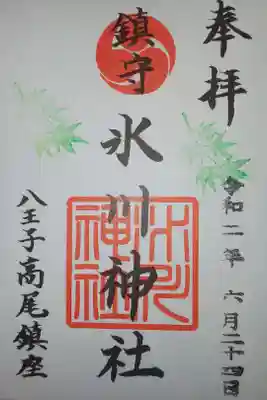 奉拝
令和二年 六月二十四日
鎮守
氷川神社
氷川
神社
八王子高尾鎮座